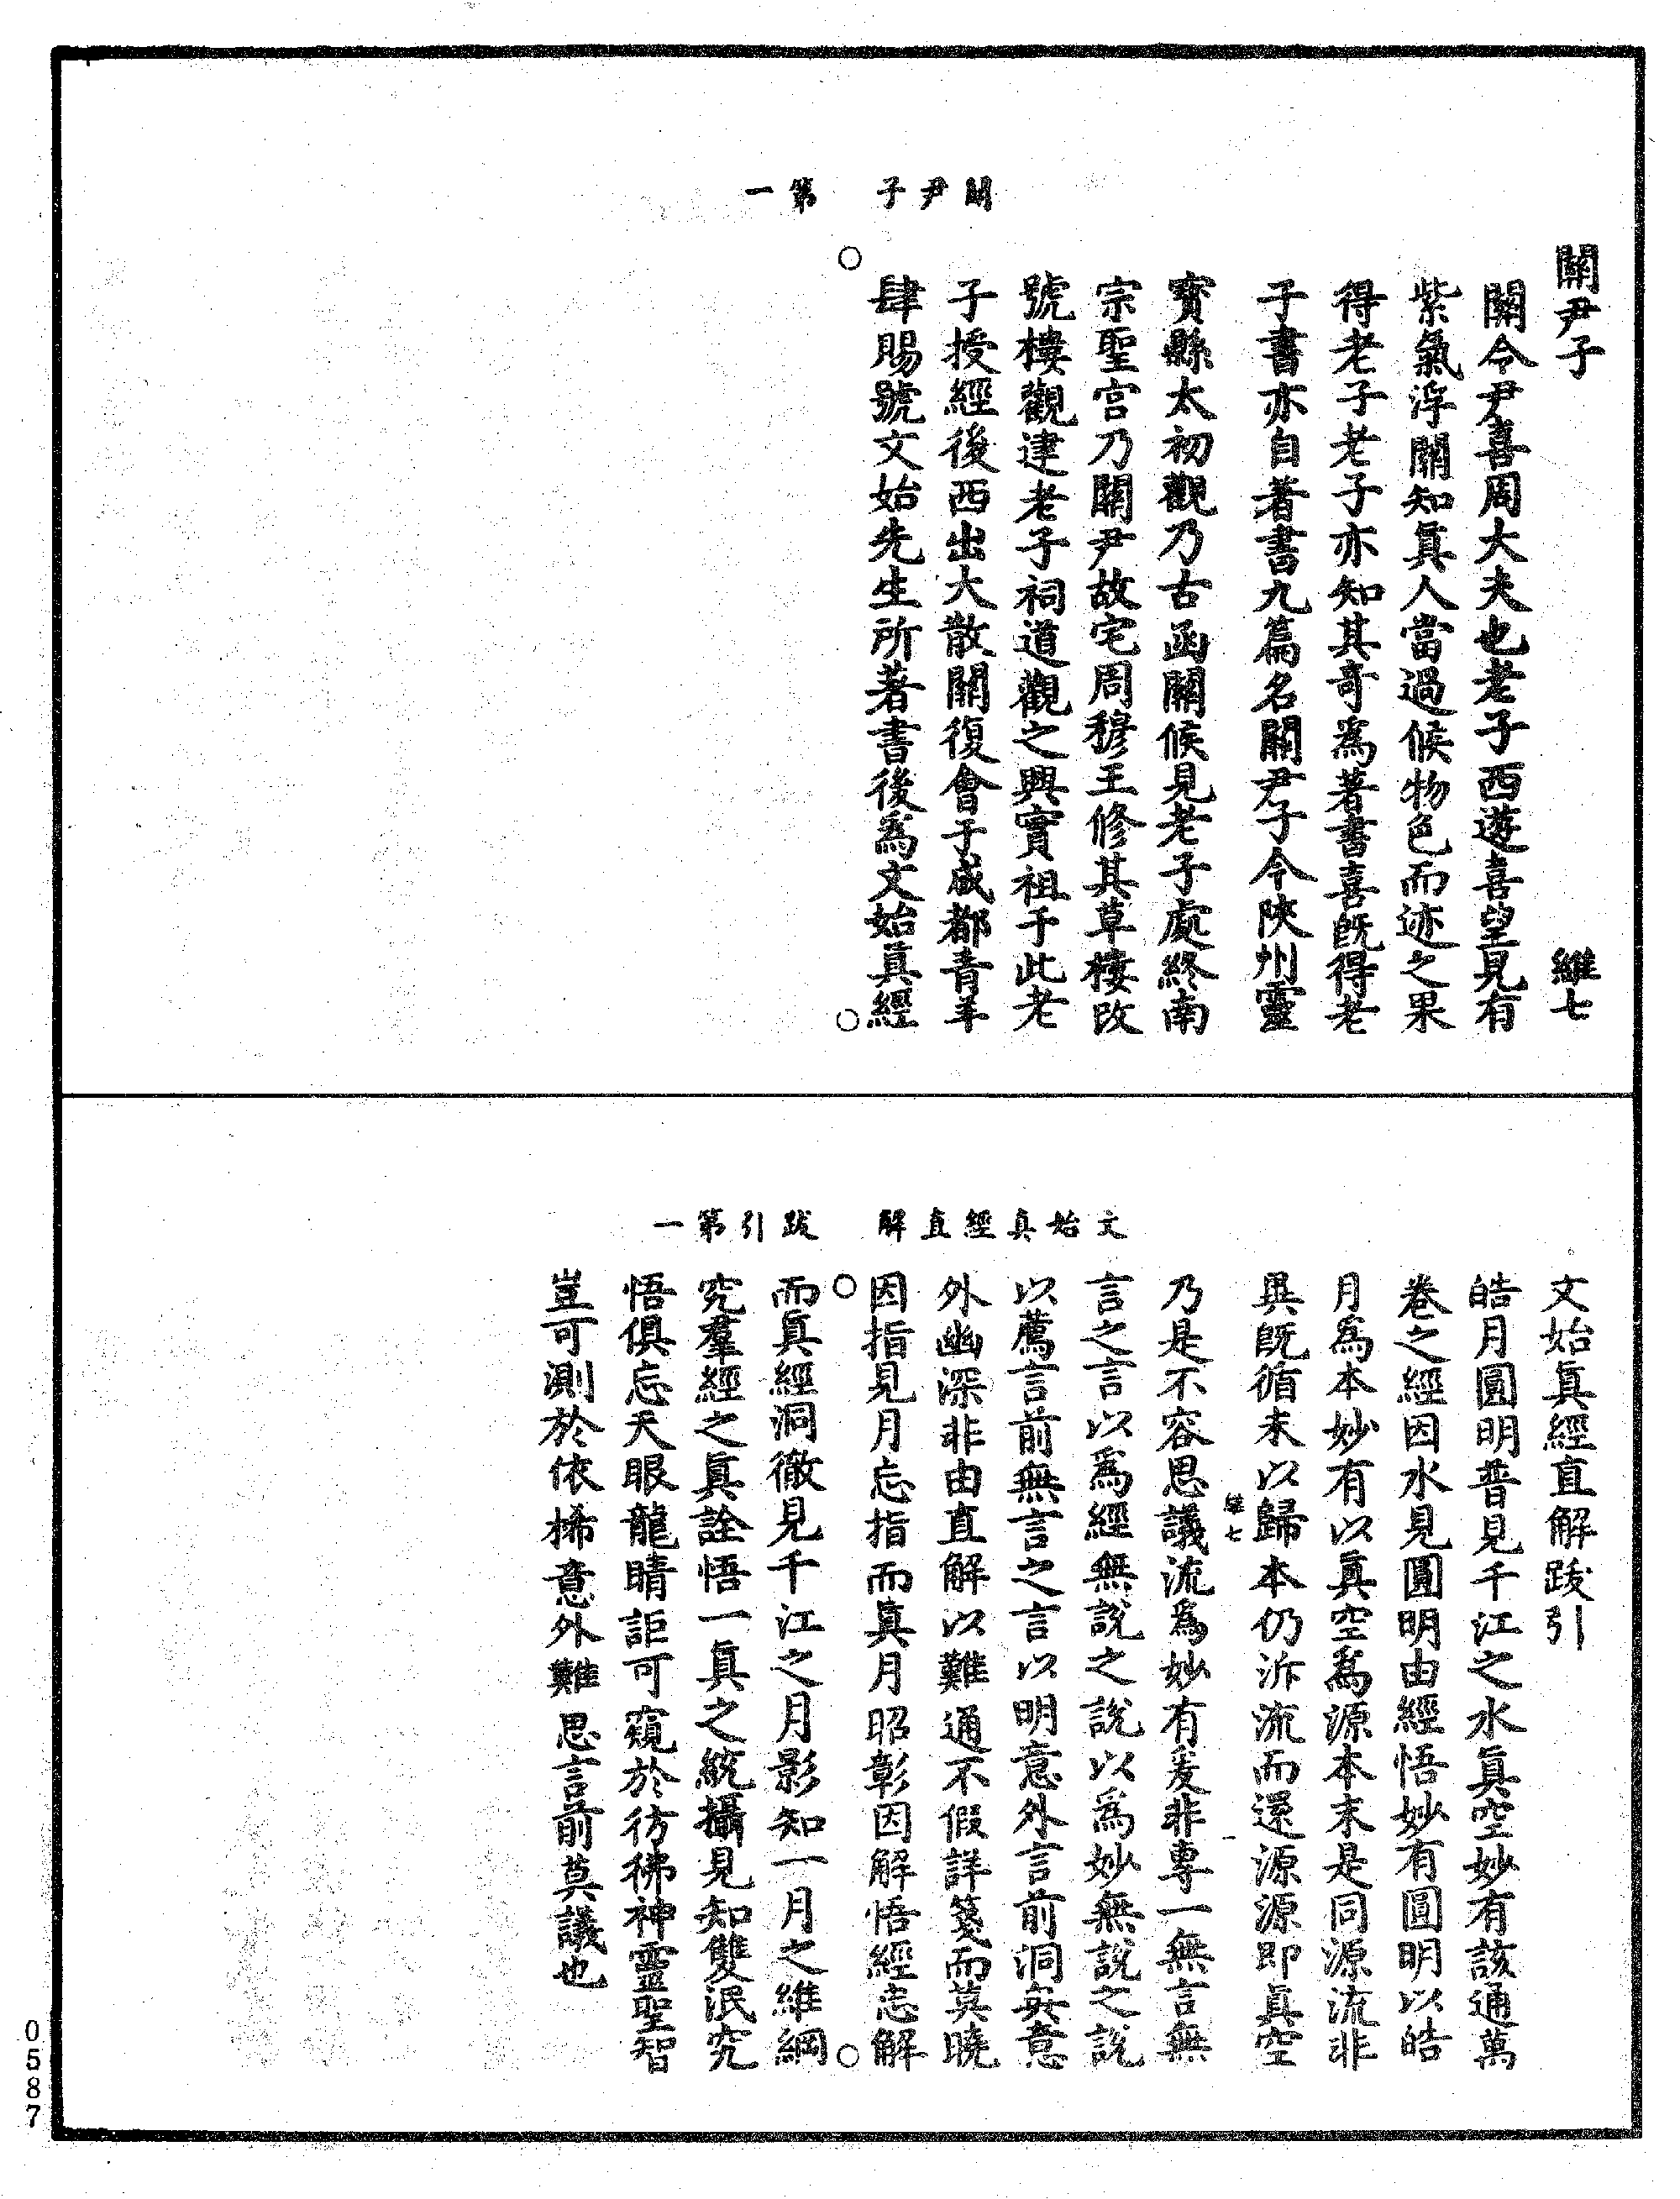 關尹子　第一
關尹子　維七
關令尹喜周大夫也老子西遊喜望見有
紫氣浮關知眞人當過候物色而迹之果
得老子老子亦知其奇爲著書喜旣得老
子書亦自著書九篇名關尹子今陝州靈
寳縣太初觀乃古函關候見老子處終南
宗聖宮乃關尹故宅周穆王修其草樓改
號樓觀建老子祠道觀之興實祖于此老
子授經後西出大散關復會于成都青羊
肆賜號文始先生所著書後爲文始眞經
文始眞經直解　跋引第一
文始眞經直解跋引
皓月圓明普見千江之水眞空妙有該通萬
卷之經因水見圓明由經悟妙有圓明以皓
月爲本妙有以眞空爲源本末是同源流非
異旣循末以歸本仍泝流而還源源即眞空
維七
乃是不容思議流爲妙有爰非專一無言無
言之言以爲經無說之說以爲妙無說之說
以薦言前無言之言以明意外言前洞妄意
外幽深非由直解以難通不假詳箋而莫曉
因指見月忘指而眞月昭彰因解悟經忘解
而眞經洞徹見千江之月影知一月之維綱
究羣經之眞詮悟一眞之統攝見知雙泯究
悟俱忘天眼龍睛詎可窺於彷彿神靈聖智
豈可測於依俙意外難思言前莫議也
0587